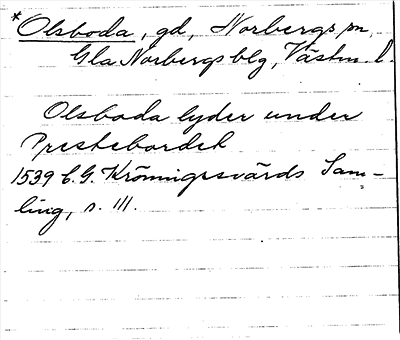 *Olsboda, gd, Norbergs sn,
Gla Norbergs blg, Västm. l.
Olsboda lyder under
Prestebordeth
1539 C.G. Krönnigssvärds Sam-
ling, s. 111.